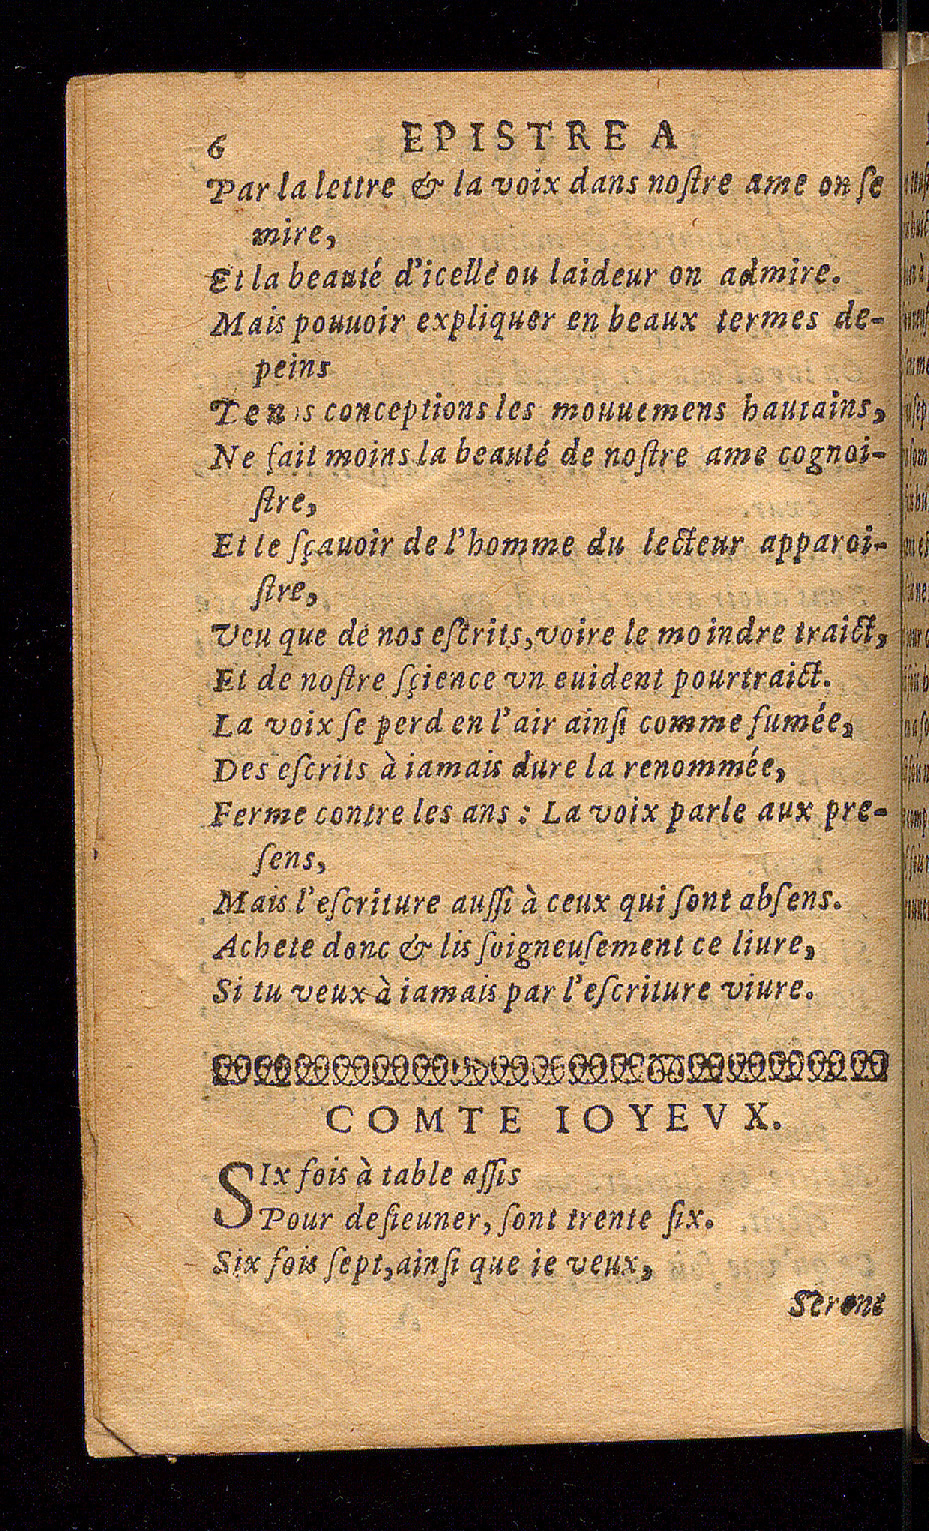 6 EPISTRE A
Par la lettre & la voix dans noſtre ame on ſe
mire,
Et la beauté d'icelle ou laideur on admire.
Mais pouuoir expliquer en beaux termes de-
peins
conceptions les mouuemens hautains,
Ne fait moins la beauté de noſtre ame cognoi-
ſtre,
Et le ſçauoir de l'homme du lecteur apparoi-
ſtre,
Veu que de nos eſcrits, voire le moindre traict,
Et de noſtre ſçience vn euident pourtraict.
La voix ſe perd en l'air ainſi comme fumée,
Des eſcrits à iamais dure la renommée,
Ferme contre les ans : La voix parle aux pre-
ſens,
Mais l'eſcriture auſſi à ceux qui ſont abſens.
Achete donc & lis ſoigneuſement ce liure,
Si tu veux à iamais par l'eſcriture viure.
COMTE IOYEVX.
SIx fois à table aſſis
Pour deſieuner, ſont trente ſix.
Six fois ſept, ainſi que ie veux,
Seront